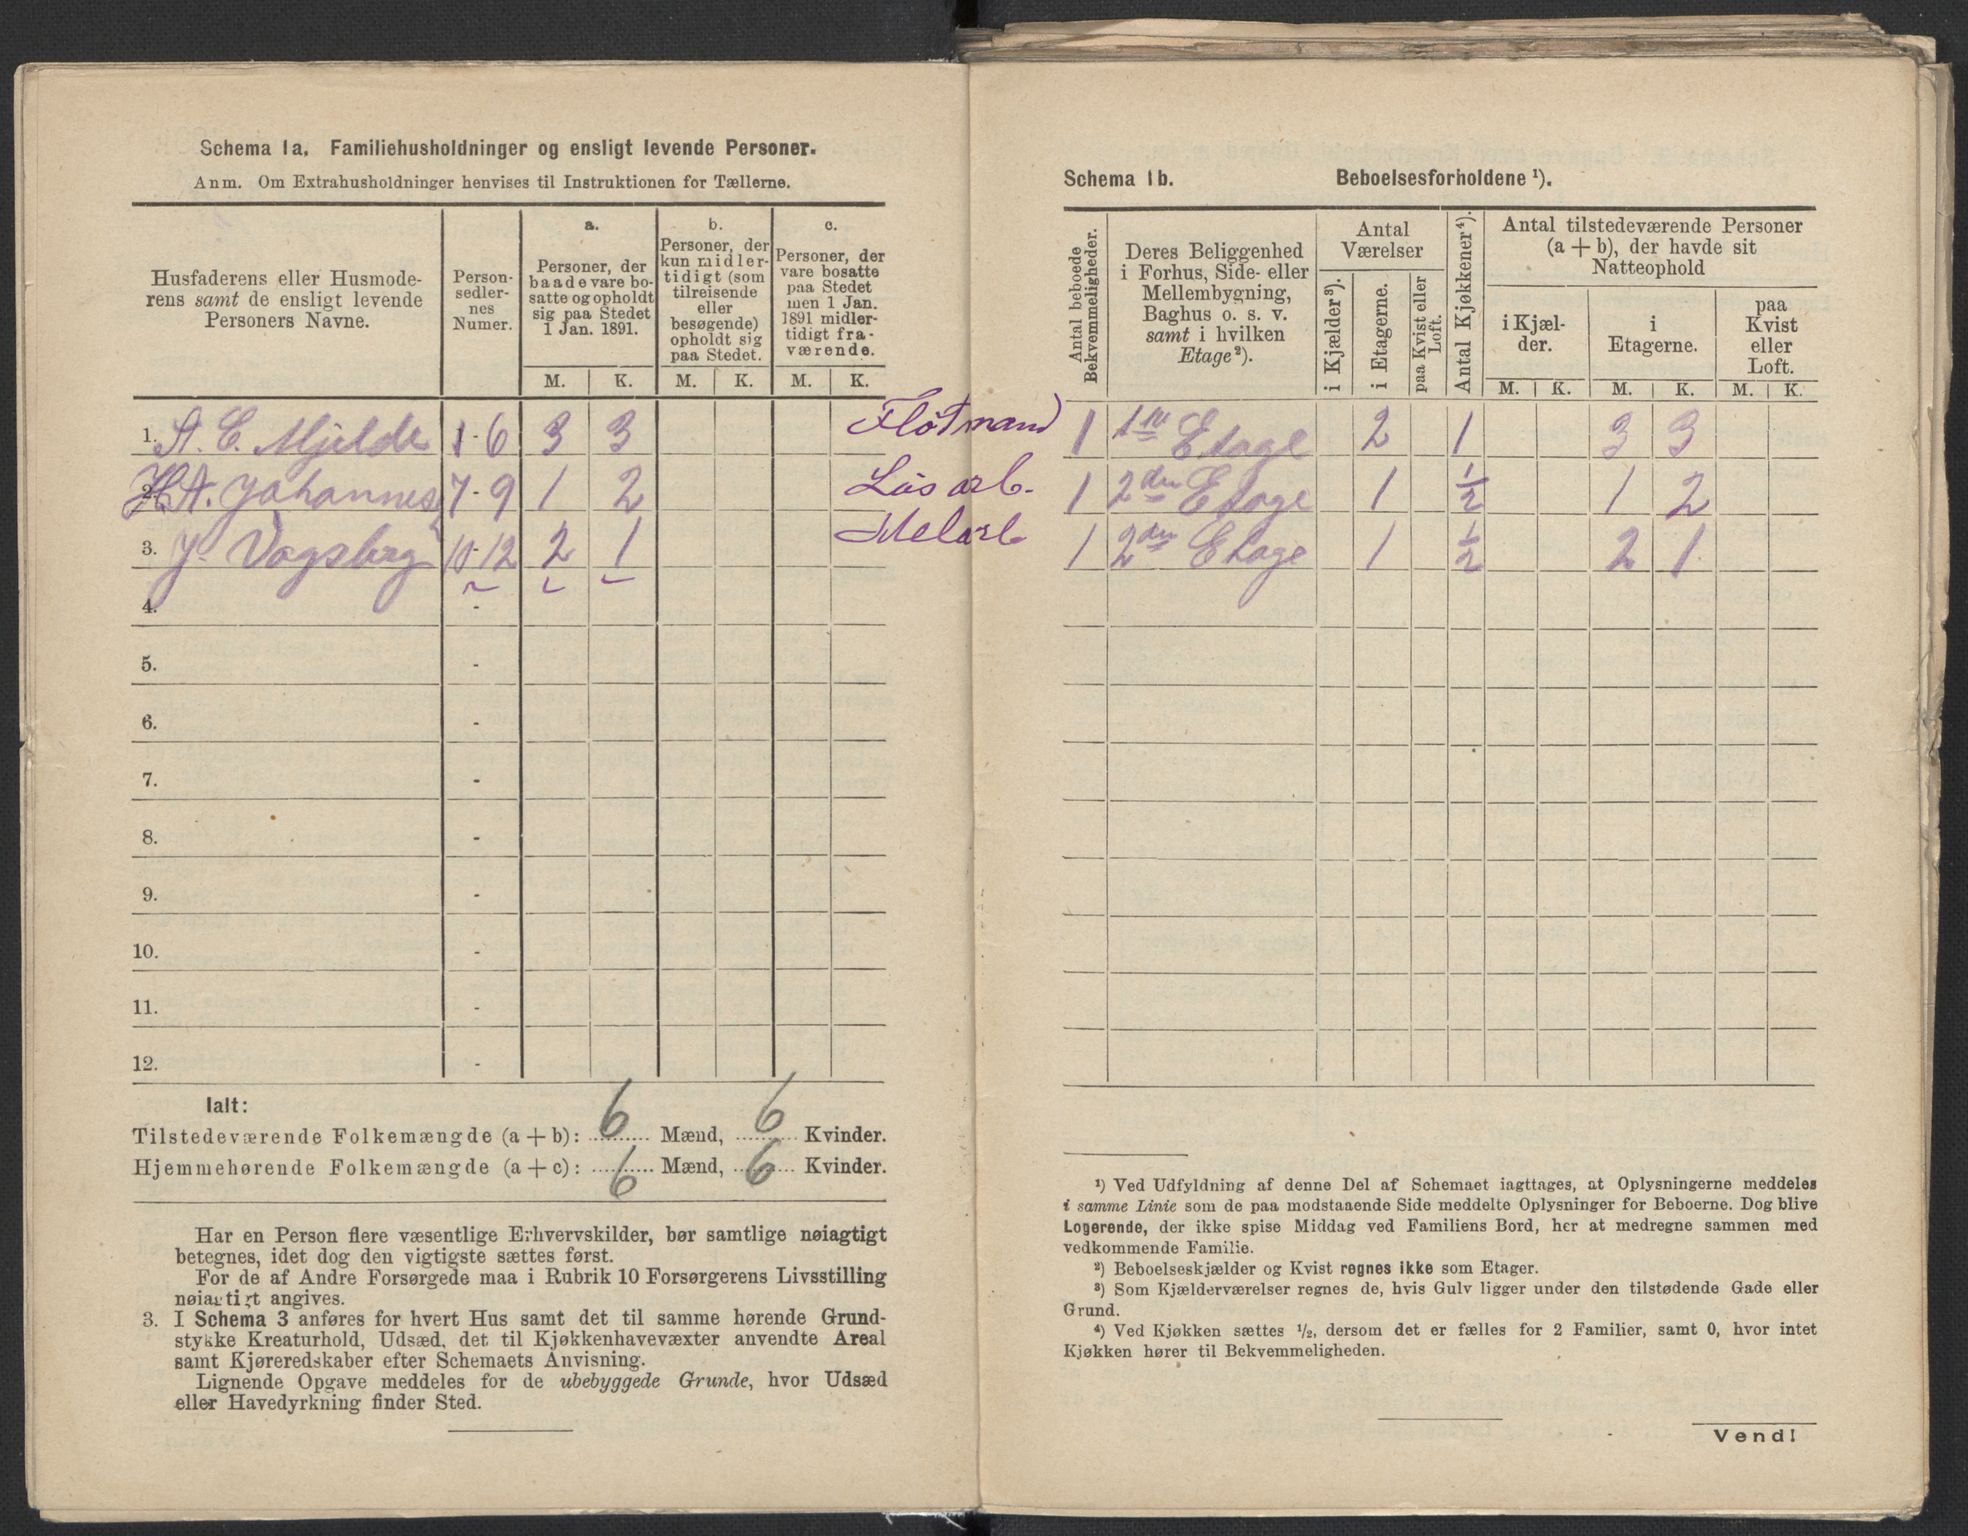 Schema 1a. Familiehusholdninger og ensligt levende Personer.
Anm. Om Extrahusholdninger henvises til Instruktionen for Tællerne.
Husfaderens eller Husmoderens samt de ensligt levende Personers Navne.
Person-sedlernes Numer.
a. Personer, der baade vare bosatte og opholdt sig paa Stedet 1 Jan. 1891.
b. Personer, der kun midlertidigt (som tilreisende eller besøgende) opholdt sig paa Stedet.
c. Personer, der vare bosatte paa Stedet men 1 Jan. 1891 midlertidigt fraværende.
M. K. M. K. M. K.
1. A. C. Mjelde 1-6 3 3 Flótmand
2. H. A. Johannes 7-9 1 2 Løsarb.
3. J. Vogsberg 10-12 2 1 Melarb
4. -
5. -
6. -
7. -
8. -
9. -
10. -
11. -
12. -
Ialt:
Tilstedeværende Folkemængde (a + b): 6 Mænd, 6 Kvinder.
Hjemmehørende Folkemængde (a + c): 6 Mænd, 6 Kvinder.
Har en Person flere væsentlige Erhvervskilder, bør samtlige nøiagtigt
betegnes, idet dog den vigtigste sættes først.
For de af Andre Forsørgede maa i Rubrik 10 Forsørgerens Livsstilling
nøiagtigt angives.
3. I Schema 3 anføres for hvert Hus samt det til samme hørende Grund-
stykke Kreaturhold, Udsæd, det til Kjøkkenhavevæxter anvendte Areal
samt Kjøreredskaber efter Schemaets Anvisning.
Lignende Opgave meddeles for de ubebyggede Grunde, hvor Udsæd
eller Havedyrkning finder Sted.
Schema 1b. Beboelsesforholdene ¹).
Antal beboede Bekvemmeligheder.
Deres Beliggenhed i Forhus, Side- eller Mellembygning, Baghus o. s. v. samt i hvilken Etage ²).
Antal Værelser
i Kjælder ³). i Etagerne. paa Kvist eller Loft.
Antal Kjøkkener ⁴).
Antal tilstedeværende Personer (a + b), der havde sit Natteophold
i Kjælder. i Etagerne. paa Kvist eller Loft.
M. K. M. K. M. K.
1 1ste Etage 2 1 3 3
1 2den Etage 1 ½ 1 2
1 2den Etage 1 ½ 2 1
¹) Ved Udfyldning af denne Del af Schemaet iagttages, at Oplysningerne meddeles
i samme Linie som de paa modstaaende Side meddelte Oplysninger for Beboerne. Dog blive
Logerende, der ikke spise Middag ved Familiens Bord, her at medregne sammen med
vedkommende Familie.
²) Beboelseskjælder og Kvist regnes ikke som Etager.
³) Som Kjælderværelser regnes de, hvis Gulv ligger under den tilstødende Gade eller
Grund.
⁴) Ved Kjøkken sættes ½, dersom det er fælles for 2 Familier, samt 0, hvor intet
Kjøkken hører til Bekvemmeligheden.
Vend!